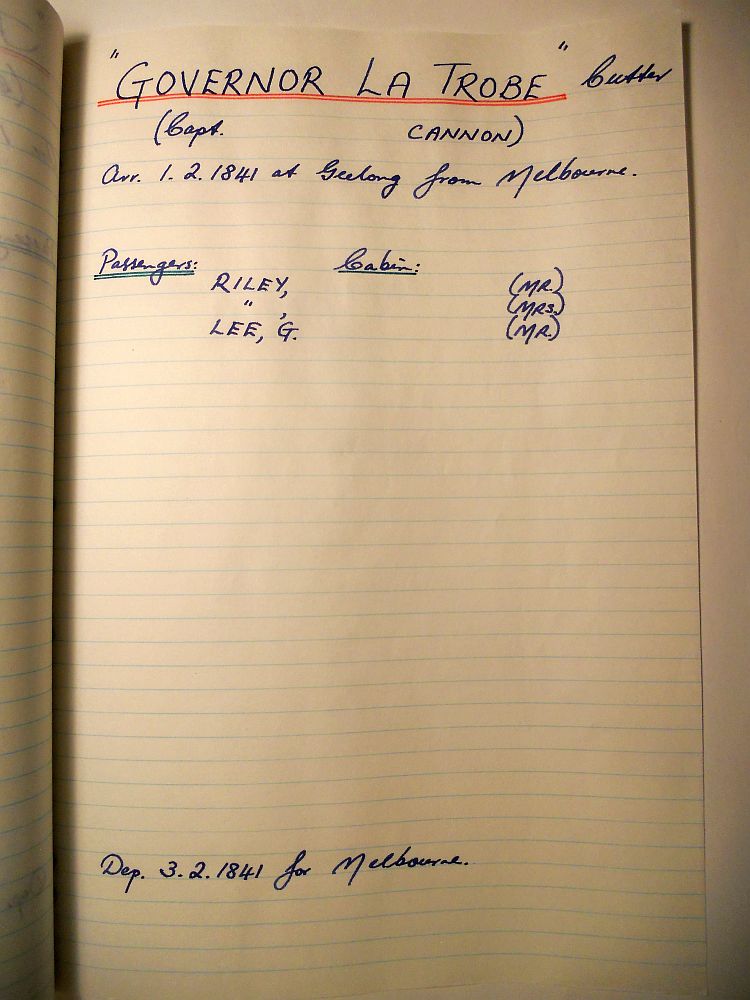 "GOVERNOR LA TROBE" Cutter
(Capt. CANNON)
Arr. 1.2.1841 at Geelong from Melbourne.
Passengers: Cabin:
RILEY, (MR.)
" , (MRS.)
LEE, G. (MR.)
Dep. 3.2.1841 for Melbourne.